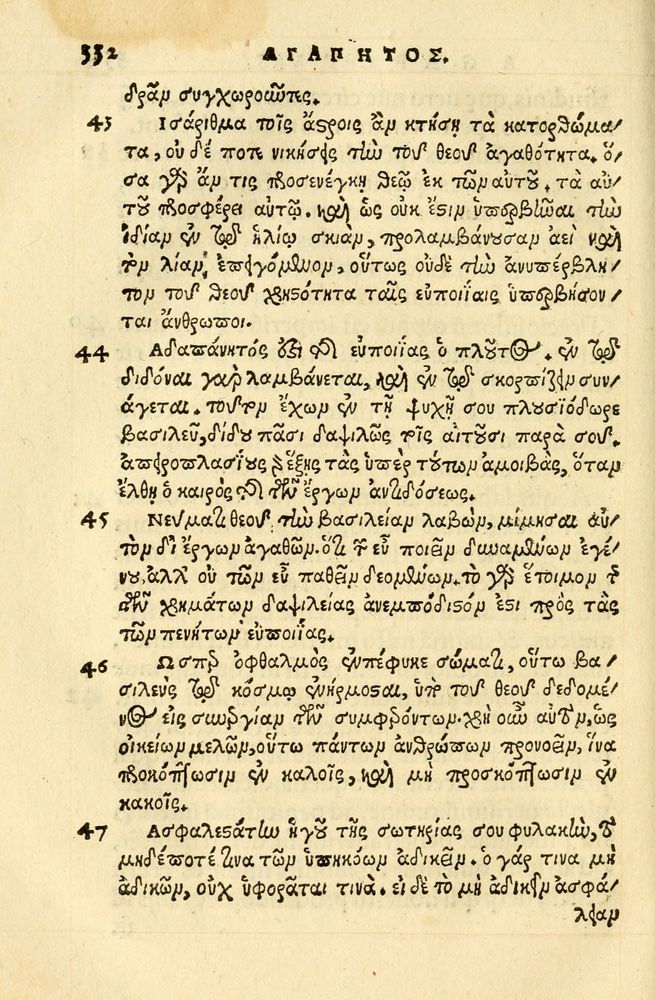 332 ΑΓΑΠΗΤΟΣ.
δρᾶν συγχωροῦντες.
43 Ισάριθμα τοῖς ἄστροις ἂν κτήσῃ τὰ κατορθώμα-
τα, οὐδέ ποτε νικήσεις τὴν τοῦ θεοῦ ἀγαθότητα. ὅ-
σα γὰρ ἄν τις προσενέγκῃ θεῷ ἐκ τῶν αὐτοῦ, τὰ αὐ-
τοῦ προσφέρει αὐτῷ. καὶ ὡς οὐκ ἔστιν ὑπερβῆναι τὴν
ἰδίαν ἐν τῷ ἡλίῳ σκιὰν, προλαμβάνουσαν ἀεὶ καὶ
τὸν λίαν ἐπειγόμενον, οὕτως οὐδὲ τὴν ἀνυπέρβλη-
τον τοῦ θεοῦ χρηστότητα ταῖς εὐποιΐαις ὑπερβήσον-
ται ἄνθρωποι.
44 Αδαπάνητός ἐστι τῆς εὐποιΐας ὁ πλοῦτος. ἐν τῷ
διδόναι γὰρ λαμβάνεται, καὶ ἐν τῷ σκορπίζειν συν-
άγεται. τοῦτον ἔχων ἐν τῇ ψυχῇ σου πλουσιόδωρε
βασιλεῦ, δίδου πᾶσι δαψιλῶς τοῖς αἰτοῦσι παρὰ σοῦ.
ἀπειροπλασίους γὰρ ἕξεις τὰς ὑπὲρ τούτων ἀμοιβὰς, ὅταν
ἔλθῃ ὁ καιρὸς τῆς τῶν ἔργων ἀντιδόσεως.
45 Νεύματι θεοῦ τὴν βασιλείαν λαβὼν, μίμησαι αὐ-
τὸν δι᾽ ἔργων ἀγαθῶν. ὅτι τῶν εὖ ποιεῖν δυναμένων ἐγέ-
νου, ἀλλ᾽ οὐ τῶν εὖ παθεῖν δεομένων. τὸ γὰρ ἕτοιμον τῆς
τῶν χρημάτων δαψιλείας ἀνεμπόδιστόν ἐστι πρὸς τὰς
τῶν πενήτων εὐποιΐας.
46 Ωσπερ ὀφθαλμὸς ἐμπέφυκε σώματι, οὕτω βα-
σιλεὺς τῷ κόσμῳ ἐνήρμοσται, ὑπὸ τοῦ θεοῦ δεδομέ-
νος εἰς συνεργίαν τῶν συμφερόντων. χρὴ οὖν αὐτὸν, ὡς
οἰκείων μελῶν, οὕτω πάντων ἀνθρώπων προνοεῖν, ἵνα
προκόπτωσιν ἐν καλοῖς, καὶ μὴ προσκόπτωσιν ἐν
κακοῖς.
47 Ασφαλεστάτην ἡγοῦ τῆς σωτηρίας σου φυλακὴν, τὸ
μηδέποτέ τινα τῶν ὑπηκόων ἀδικεῖν. ὁ γάρ τινα μὴ
ἀδικῶν, οὐχ ὑφορᾶται τινὰ. εἰ δὲ τὸ μὴ ἀδικεῖν ἀσφά-
λειαν